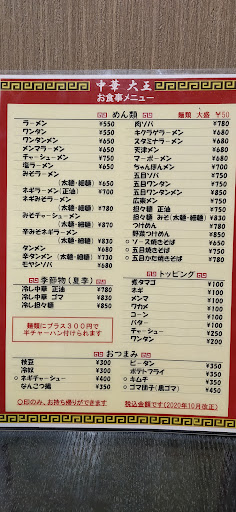 中華 大王
お食事メニュー
めん類
麺類 大盛 ¥50
ラーメン ¥550
ワンタン ¥550
ワンタンメン ¥650
メンマラーメン ¥650
チャーシューメン ¥750
塩ラーメン ¥650
みそラーメン
(太麺・細麺) ¥650
ネギラーメン(正油) ¥700
ネギみそラーメン
(太麺・細麺) ¥780
みそチャーシューメン
(太麺・細麺) ¥780
辛みそネギラーメン
(太麺・細麺) ¥830
タンメン ¥680
辛タンメン(太麺・細麺) ¥730
モヤシソバ ¥680
肉ソバ ¥780
キクラゲラーメン ¥680
スタミナラーメン ¥680
天津メン ¥680
マーボーメン ¥680
ちゃんぽんメン ¥700
五目ソバ ¥750
五目ワンタン ¥750
五目ワンタンメン ¥850
広東メン ¥750
担々麺 正油 ¥750
担々麺 みそ(太麺・細麺) ¥780
つけめん ¥780
野菜つけめん ¥850
○ ソース焼きそば ¥650
○ 五目焼きそば ¥750
○ 五目かた焼きそば ¥780
季節物(夏季)
冷し中華 正油 ¥780
冷し中華 ゴマ ¥830
冷し担々麺 ¥850
麺類にプラス300円で
半チャーハン付けられます
トッピング
煮タマゴ ¥100
ネギ ¥100
メンマ ¥100
ワカメ ¥100
コーン ¥100
バター ¥100
チャシュー ¥250
ワンタン ¥200
おつまみ
枝豆 ¥300
冷奴 ¥300
○ ネギチャーシュー ¥400
なんこつ揚 ¥350
ピータン ¥350
ポテトフライ ¥350
○ キムチ ¥350
○ ゴマ団子(黒ゴマ) ¥450
○印のみ、お持ち帰りができます
税込金額です(2020年10月改正)